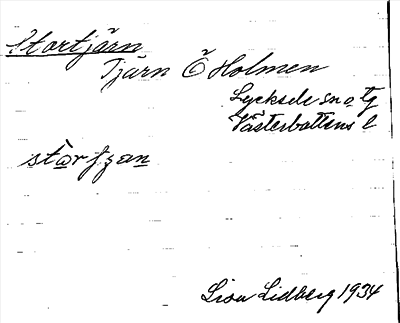 Stortjärn
Tjärn Ö Holmen
Lycksele sn o tg
Västerbottens l
stòrtjan
Lisa Lidberg 1934